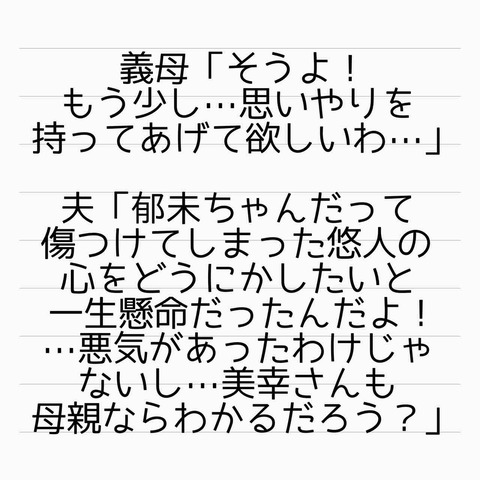 義母「そうよ！
もう少し…思いやりを
持ってあげて欲しいわ…」
夫「郁未ちゃんだって
傷つけてしまった悠人の
心をどうにかしたいと
一生懸命だったんだよ！
…悪気があったわけじゃ
ないし…美幸さんも
母親ならわかるだろう？」